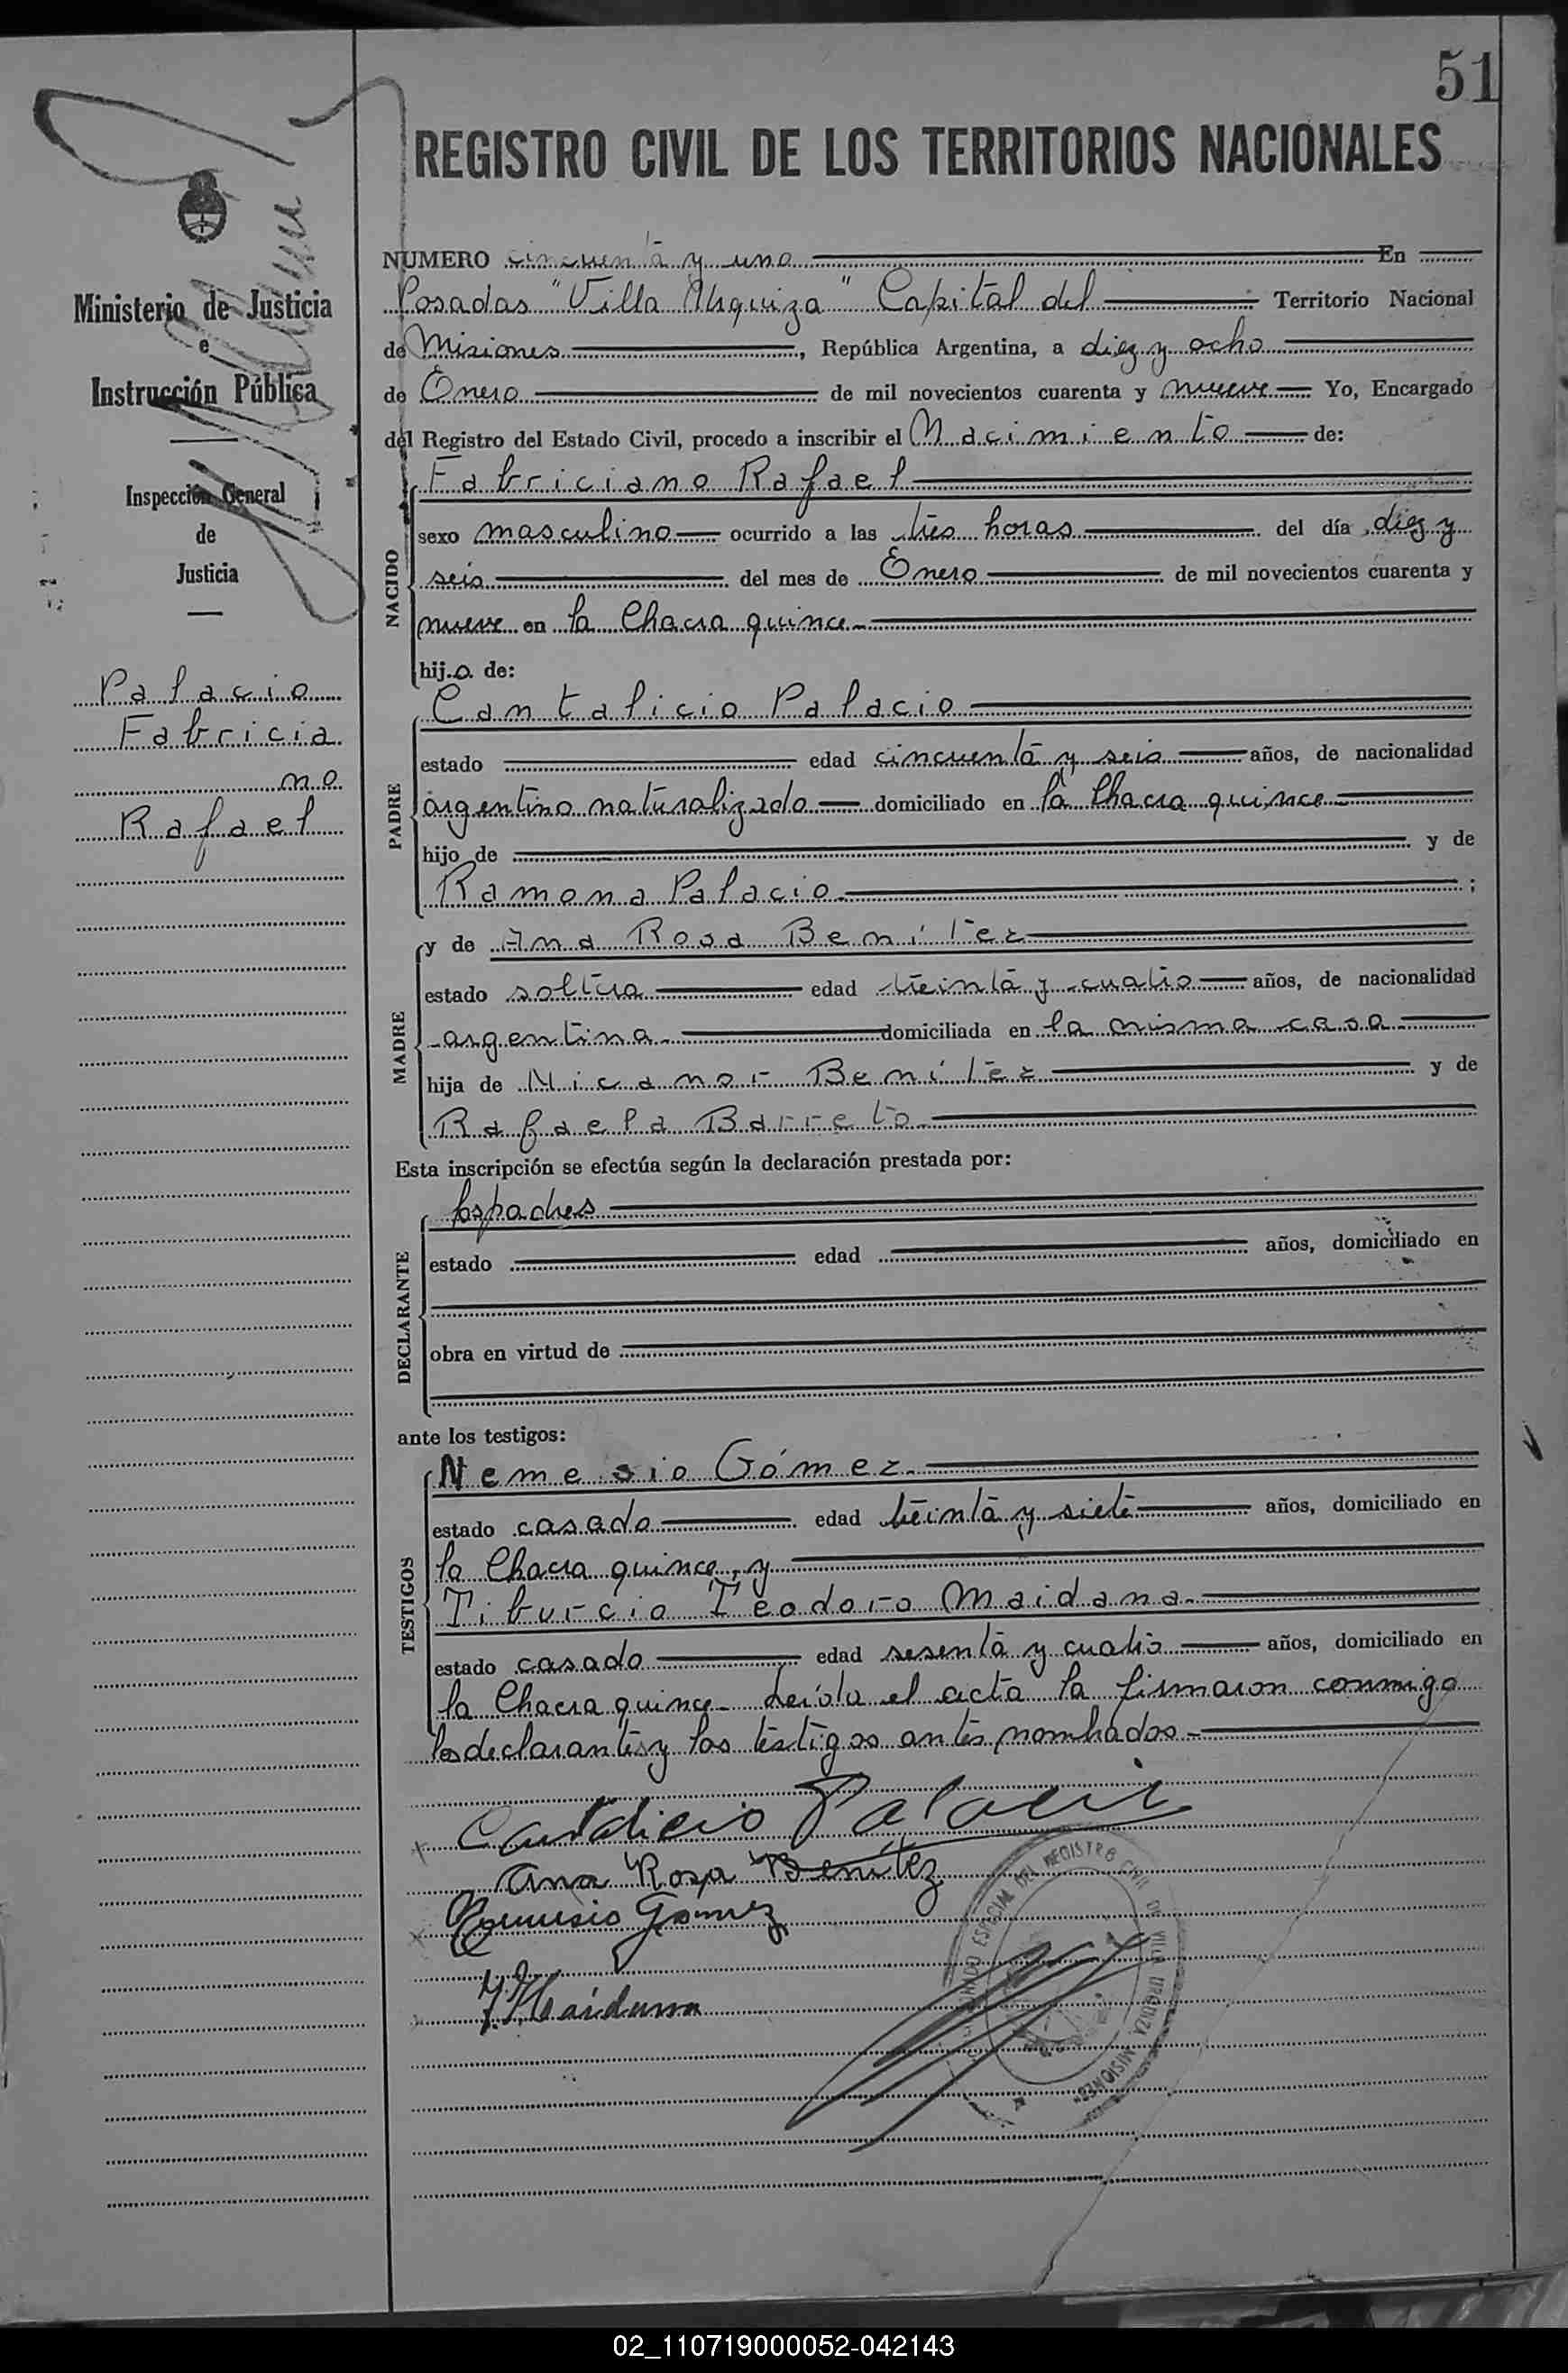 51
REGISTRO CIVIL DE LOS TERRITORIOS NACIONALES
Ministerio de Justicia
e
Instrucción Pública
Inspección General
de
Justicia
Palacio
Fabricia
no
Rafael
NUMERO cincuenta y uno En
Posadas "Villa Urquiza" Capital del Territorio Nacional
de Misiones, República Argentina, a diez y ocho
de Enero de mil novecientos cuarenta y nueve Yo, Encargado
del Registro del Estado Civil, procedo a inscribir el Nacimiento de:
NACIDO
Fabriciano Rafael
sexo masculino ocurrido a las tres horas del día diez y
seis del mes de Enero de mil novecientos cuarenta y
nueve en la Chacra quince
hijo de:
PADRE
Cantalicio Palacio
estado edad cincuenta y seis años, de nacionalidad
argentino naturalizado domiciliado en la Chacra quince
hijo de y de
Ramona Palacio ;
MADRE
y de Ana Rosa Benítez
estado soltera edad treinta y cuatro años, de nacionalidad
argentina domiciliada en la misma casa
hija de Nicanor Benítez y de
Rafaela Barreto
Esta inscripción se efectúa según la declaración prestada por:
DECLARANTE
los padres
estado edad años, domiciliado en
obra en virtud de
ante los testigos:
TESTIGOS
Nemesio Gómez
estado casado edad treinta y siete años, domiciliado en
la Chacra quince, y
Tiburcio Teodoro Maidana
estado casado edad sesenta y cuatro años, domiciliado en
la Chacra quince Leída el acta la firmaron conmigo
los declarantes y los testigos antes nombrados
Cantalicio Palacio
Ana Rosa Benítez
Nemesio Gomez
T. T. Maidana
ESPECIAL DEL REGISTRO CIVIL DE VILLA URQUIZA MISIONES
02_110719000052-042143